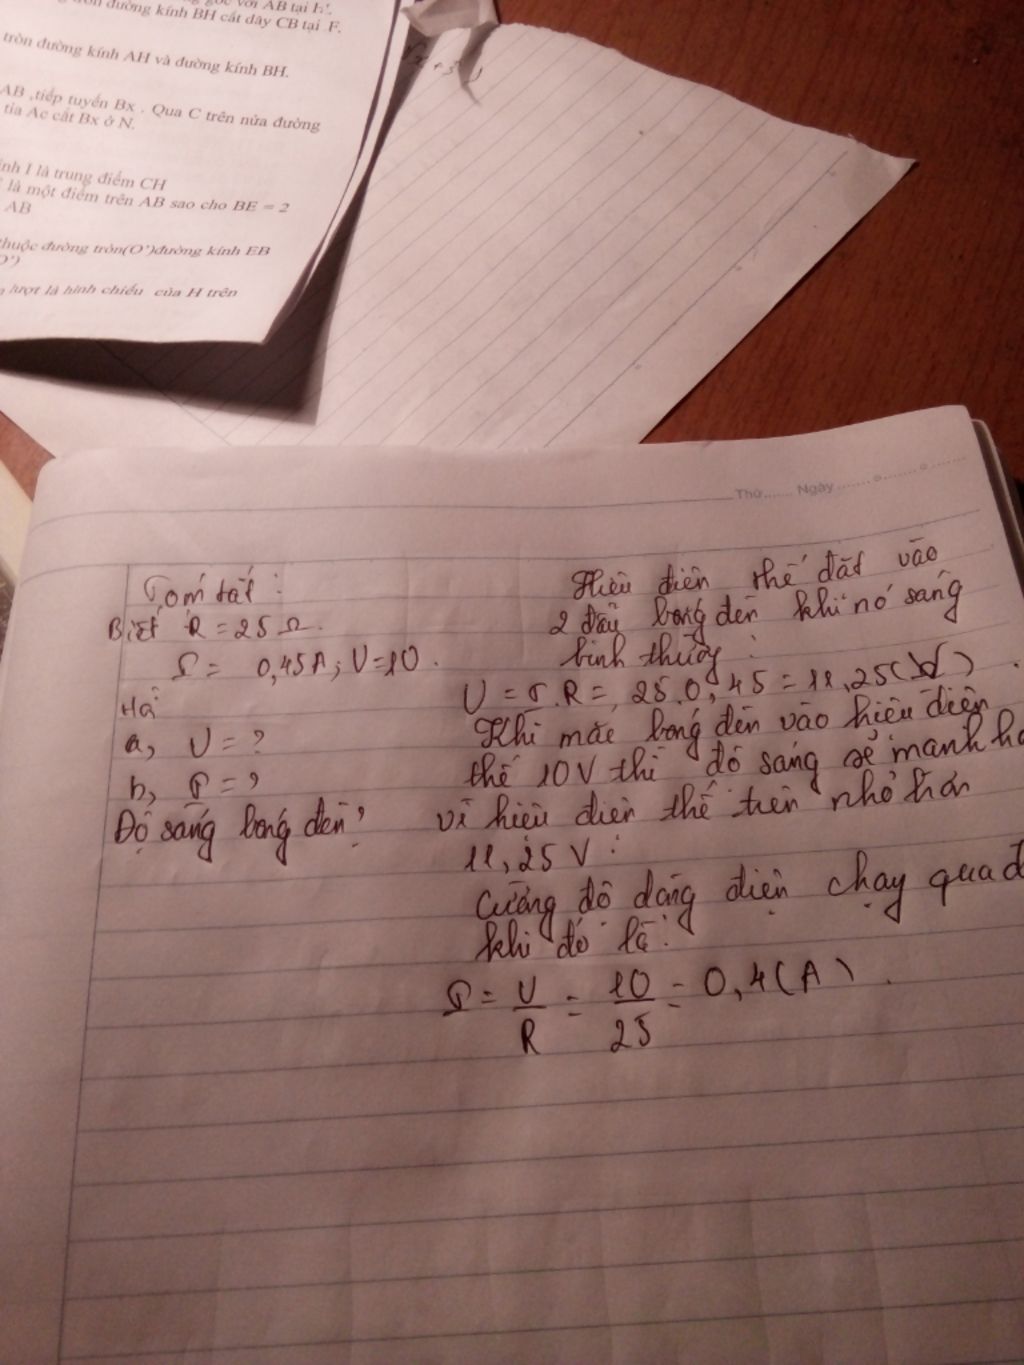 góc với AB tại E.
đường kính BH cắt dây CB tại F.
tròn đường kính AH và đường kính BH.
AB ,tiếp tuyến Bx . Qua C trên nửa đường
tia Ac cắt Bx ở N.
I là trung điểm CH
là một điểm trên AB sao cho BE = 2
AB
thuộc đường tròn(O')đường kính EB
O')
lượt là hình chiếu của H trên
Thứ....... Ngày ........ o........ o ........
Tóm tắt :
Biết R = 25 Ω.
I = 0,45A; U=10 .
Hỏi
a, U = ?
b, I = ?
Độ sáng bóng đèn?
Hiệu điện thế đặt vào
2 đầu bóng đèn khi nó sáng
bình thường :
U = I.R = 25.0,45 = 11,25(V) .
Khi mắc bóng đèn vào hiệu điện
thế 10V thì độ sáng sẽ mạnh hơ
vì hiệu điện thế trên nhỏ hơn
11,25V .
Cường độ dòng điện chạy qua đ
khi đó là:
I = U/R = 10/25 = 0,4(A) .